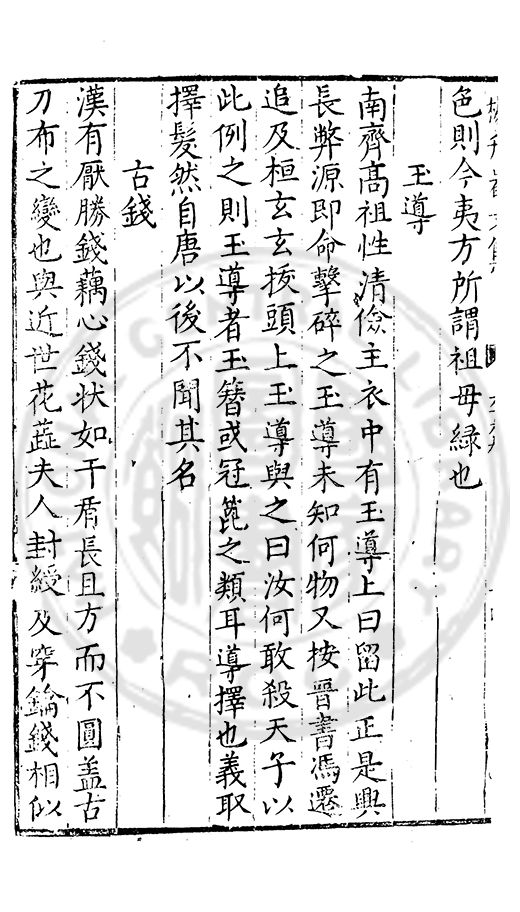 色則今夷方所謂祖母緑也
玉導
南齊髙祖性清儉主衣中有玉導上曰留此正是興
長弊源即命擊碎之玉導未知何物又按晉書馮遷
追及桓玄玄拔頭上玉導與之曰汝何敢殺天子以
此例之則玉導者玉簪或冠篦之類耳導擇也義取
擇髮然自唐以後不聞其名
古錢
漢有厭勝錢藕心錢狀如干盾長且方而不圓盖古
刀布之變也與近世花蘂夫人封綬及穿鑰錢相似